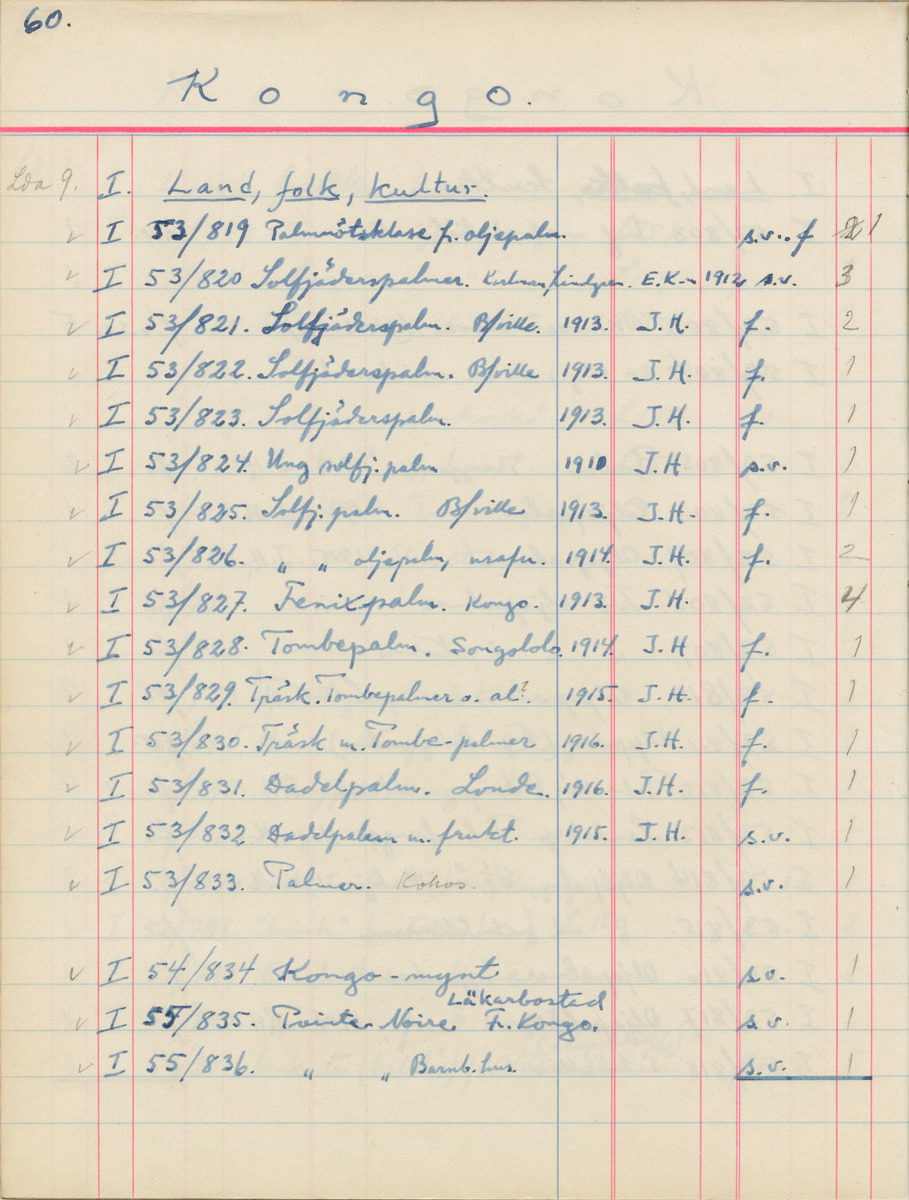 60.
Kongo.
Lda 9. I. Land, folk, kultur.
v I 53/819 Palmnötsklase fr. oljepalm. s.v., f 1
v I 53/820 Solfjäderspalmer. Lindgren. E.K-n 1912 s.v. 3
v I 53/821. Solfjäderspalm. B/ville. 1913. J.H. f. 2
v I 53/822. Solfjäderspalm. B/ville 1913. J.H. f. 1
v I 53/823. Solfjäderspalm. 1913. J.H. f. 1
v I 53/824. Ung solfj. palm 1910 J.H. s.v. 1
v I 53/825. Solfj. palm. B/ville 1913. J.H. f. 1
v I 53/826. " " oljepalm, 1914. J.H. f. 2
v I 53/827. Fenixpalm. Kongo. 1913. J.H. 4
v I 53/828. Tombepalm. Songololo. 1914. J.H f. 1
v I 53/829. Träsk. Tombepalmer o. al? 1915. J.H. f. 1
v I 53/830. Träsk m. Tombe-palmer 1916. J.H. f. 1
v I 53/831. Dadelpalm. Londe. 1916. J.H. f. 1
v I 53/832 Dadelpalm m. frukt. 1915. J.H. s.v. 1
v I 53/833. Palmer. Kokos. s.v. 1
v I 54/834 Kongo-mynt s.v. 1
Läkarbostad
v I 55/835. Pointe Noire. Fr. Kongo. s.v. 1
v I 55/836. " " Barnb. hus. s.v. 1